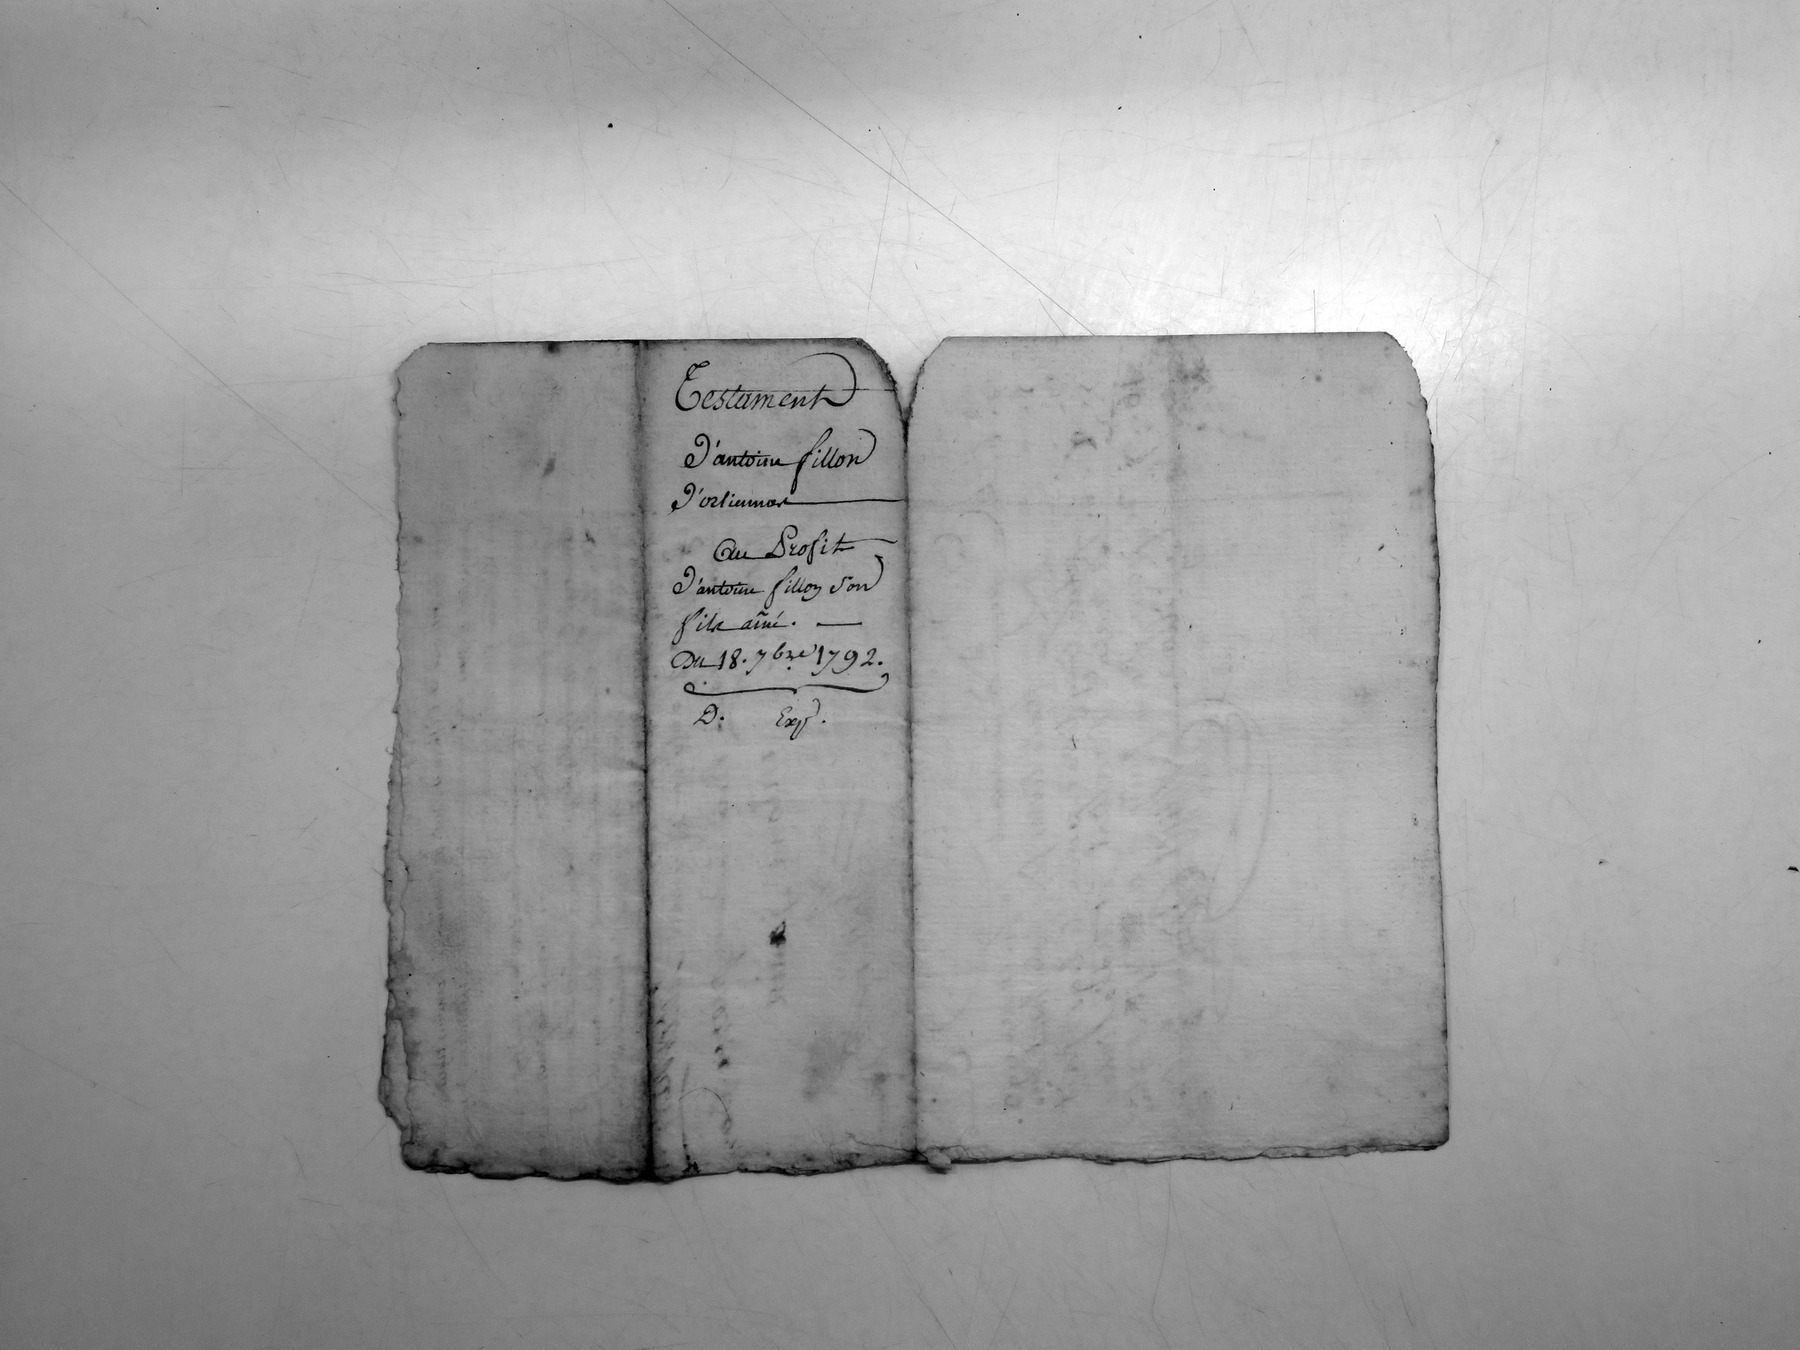 Testament
D'antoine fillon
D'orlienas
Au Profit
D'antoine fillon son
fils ainé.
Du 18. 7bre 1792.
D. Exp.